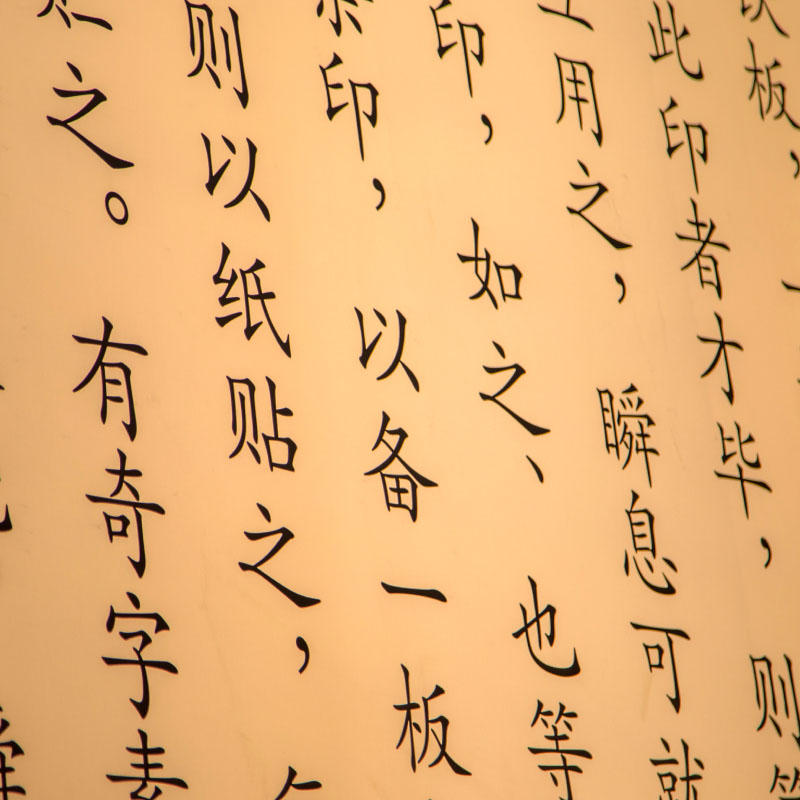 板，一
此印者才毕，则第
用之，瞬息可就
印，如之、也等
余印，以备一板
则以纸贴之，
之。有奇字素